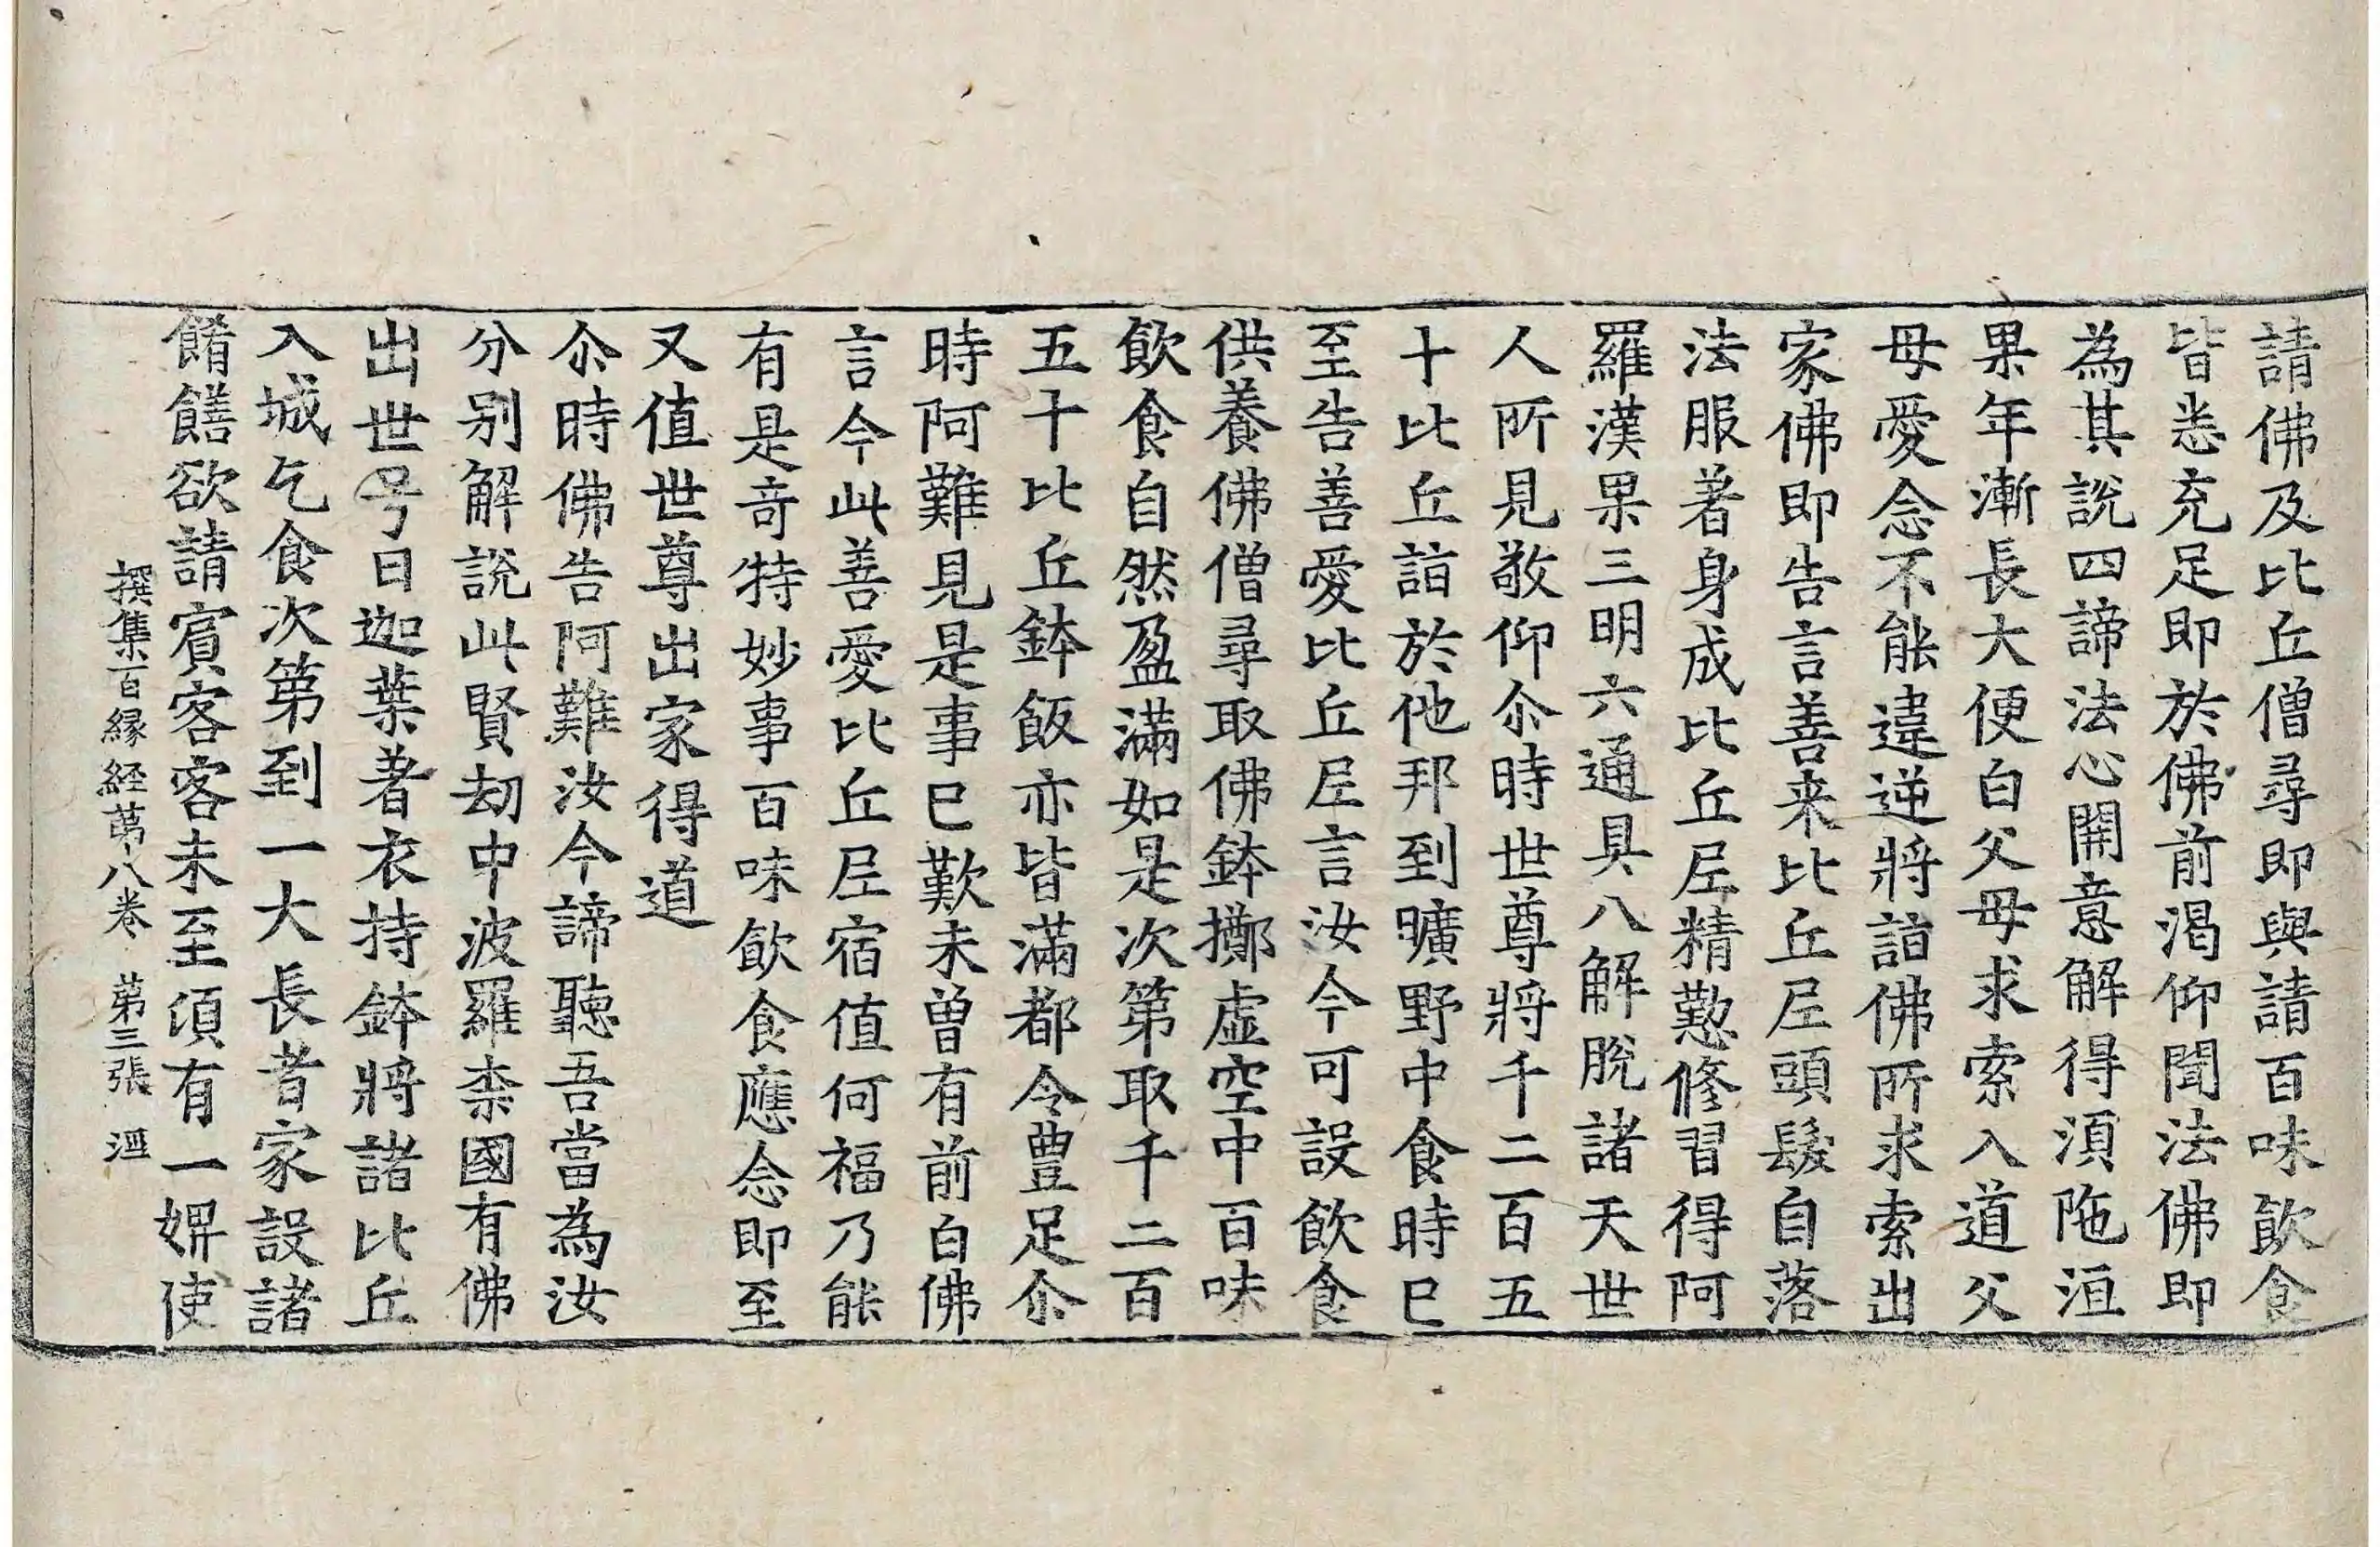 請佛及比丘僧尋即與請百味飲食
皆悉充足即於佛前渴仰聞法佛即
為其說四諦法心開意解得湏陁洹
果年漸長大便白父母求索入道父
母愛念不能違逆將詣佛所求索出
家佛即告言善来比丘𡰱頭髮自落
法服著身成比丘𡰱精懃修習得阿
羅漢果三明六通具八解脫諸天世
人所見敬仰尒時世尊將千二百五
十比丘詣於他邦到曠野中食時已
至告善愛比丘𡰱言汝今可設飲食
供養佛僧尋取佛鉢擲虛空中百味
飲食自然盈滿如是次第取千二百
五十比丘鉢飯亦皆滿都令豊足尒
時阿難見是事已歎未曽有前白佛
言今此善愛比丘𡰱宿值何福乃能
有是竒特妙事百味飲食應念即至
又值世尊出家得道
尒時佛告阿難汝今諦聽吾當為汝
分别解說此賢刼中波羅柰國有佛
出世号曰迦葉著衣持鉢將諸比丘
入城乞食次第到一大長者家設諸
餚饍欲請賔客客未至湏有一婢使
撰集百縁経苐八卷 苐三張 𣴎